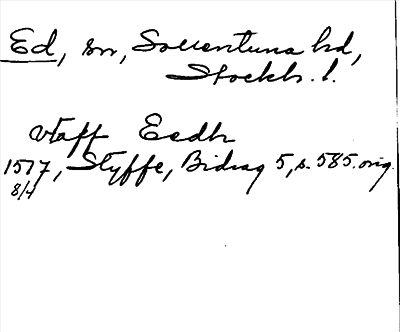 Ed, sn, Sollentuna hd,
Stockh. l.
vtaff Eedh
1517, Styffe, Bidrag 5, s. 585. orig.
8/4